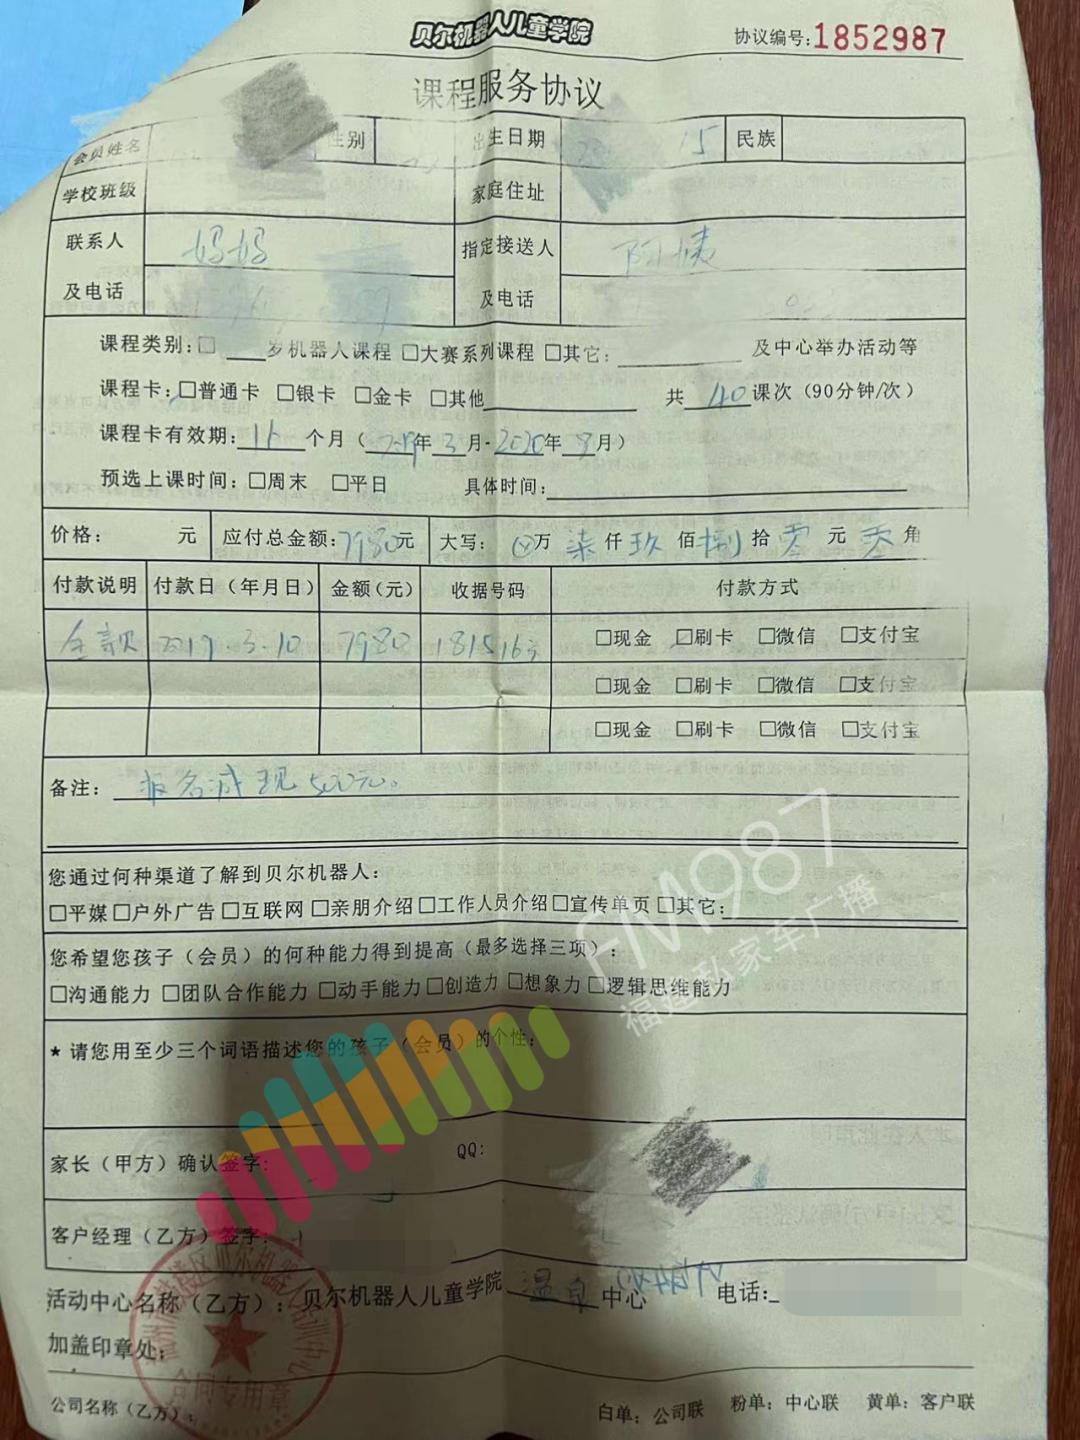 贝尔机器人儿童学院
协议编号:1852987
课程服务协议
会员姓名 性别 出生日期 15 民族
学校班级 家庭住址
联系人 妈妈 指定接送人 阿姨
及电话 及电话
课程类别:□____岁机器人课程 □大赛系列课程 □其它:________ 及中心举办活动等
课程卡:□普通卡 □银卡 □金卡 □其他________ 共 40 课次(90分钟/次)
课程卡有效期: 个月( 年 3 月- 2020 年 月)
预选上课时间:□周末 □平日 具体时间:________
价格: 元 应付总金额:7980元 大写: 万 柒 仟 玖 佰 捌 拾 零 元 零 角
付款说明 付款日(年月日) 金额(元) 收据号码 付款方式
全款 7980 □现金 □刷卡 □微信 □支付宝
□现金 □刷卡 □微信 □支付宝
□现金 □刷卡 □微信 □支付宝
备注: 报名减现500元。
您通过何种渠道了解到贝尔机器人:
□平媒 □户外广告 □互联网 □亲朋介绍 □工作人员介绍 □宣传单页 □其它:________
您希望您孩子(会员)的何种能力得到提高(最多选择三项):
□沟通能力 □团队合作能力 □动手能力 □创造力 □想象力 □逻辑思维能力
FM987
福建私家车广播
* 请您用至少三个词语描述您的孩子(会员)的个性:
家长(甲方)确认签字: QQ:
客户经理(乙方)签字:
活动中心名称(乙方):贝尔机器人儿童学院 温泉 中心 电话:
加盖印章处:
合同专用章
公司名称(乙方): 白单:公司联 粉单:中心联 黄单:客户联